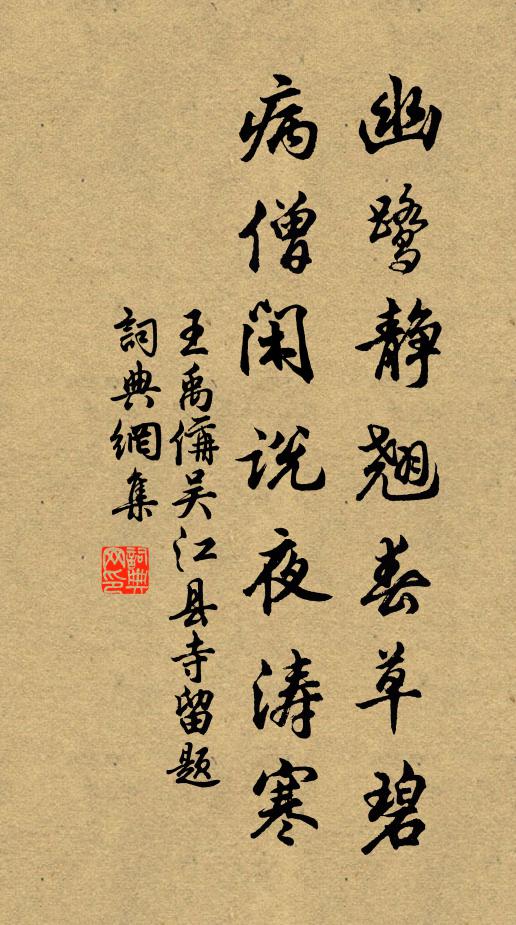 幽鹭静翘春草碧
病僧闲说夜涛寒
王禹偁吴江县寺留题
詞典網集
詞典网印